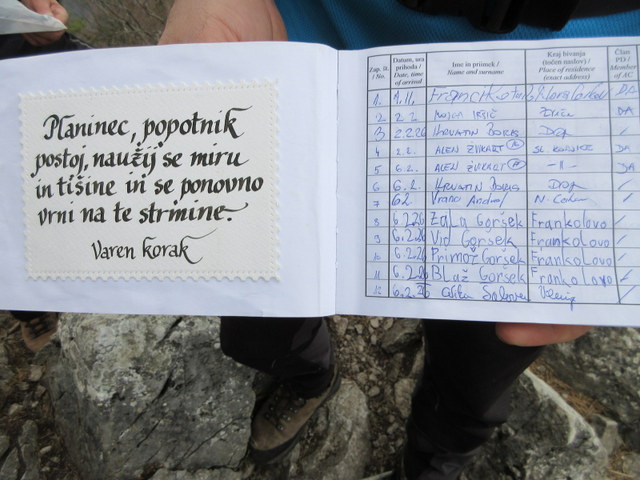 Planinec, popotnik
postoj, naužij se miru
in tišine in se ponovno
vrni na te strmine.
Varen korak
Zap. št. / No. Datum, ura prihoda / Date, time of arrival Ime in priimek / Name and surname Kraj bivanja (točen naslov) / Place of residence (exact address) Član PD / Member of AC
1. 1.11. DA
2 2.2. DA
3 2.2.26 HRVATIN BORIS /
4 2.2. ALEN ŽVIKART DA
5 6.2. ALEN ŽVIKART -11- DA
6 6.2. HRVATIN BORIS /
7 6.2. /
8 6.2.26 Zala Goršek Frankolovo /
9 6.2.26 Vid Goršek Frankolovo /
10 6.2.26 Primož Goršek Frankolovo /
11 6.2.26 Blaž Goršek Frankolovo /
12 6.2.26